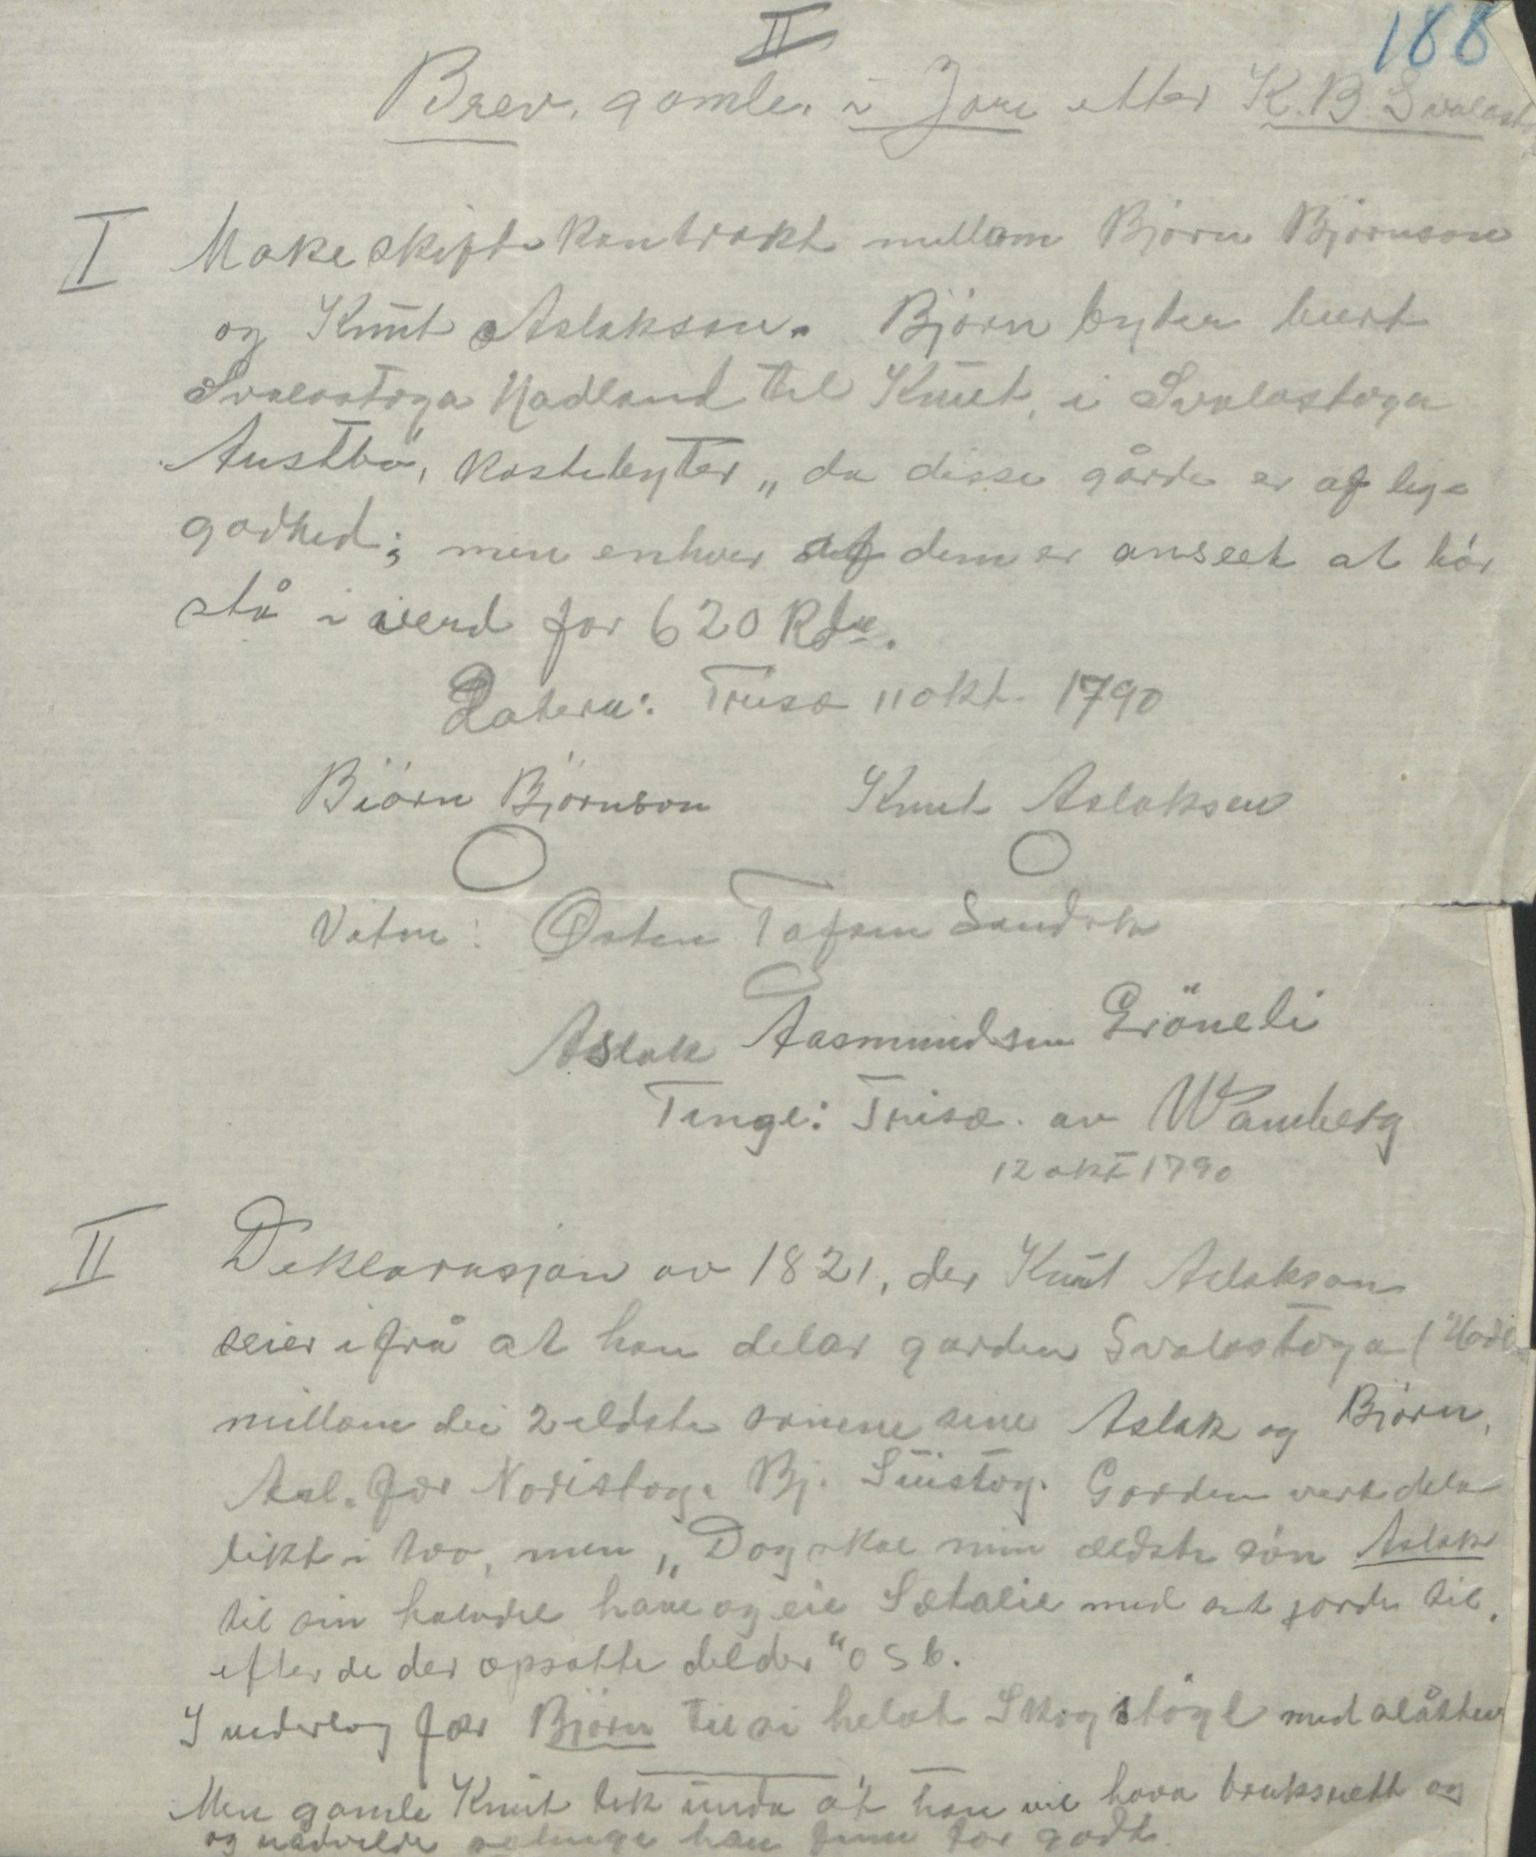 II
188
Brev, gamle, i Jore etter K.B. Svalast
I Makeskifte kontrakt millom Björn Björnson
og Knut Aslakson. Björn byter burt
Svalastoga Hadland til Knut, i Svalastoga
Austbö, kostebyter „da disse gårde er af lige
godhed; men enhver af dem er anseet at bör
stå i verd for 620 Rdr.
Datera: Trisæ 11 okt. 1790
Biörn Björnson Knut Aslaksen
Vitne: Østen Tafsen Sandok
Aslak Aasmundsen Gröneli
Tingl: Trisæ. av Wamberg
12 okt 1790
II Deklarasjon av 1821, der Knut Aslakson
seier ifrå at han delar garden Svalastoga (Hadl
millom dei 2 eldste sönene sine Aslak og Björn.
Asl. fær Noristog. Bj. Suistog. Garden vert dela
likt i two, men „Dog skal min ældste sön Aslak
til sin halvdel have og eie Sætalie med set jorde til,
efter de der opsatte delder" osb.
I vederlag fær Björn til si helvt Skogstögl med slåtten
Men gamle Knut tek unda at han vil hava bruksrett og
og rådvelde so lenge han finn for godt.